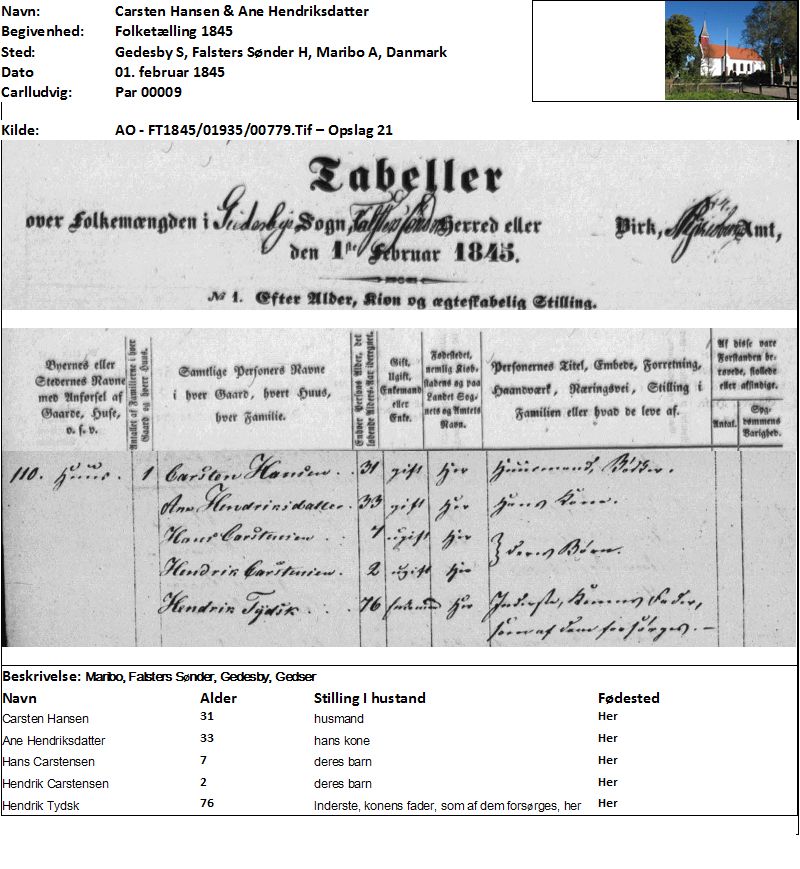 Navn: Carsten Hansen & Ane Hendriksdatter
Begivenhed: Folketælling 1845
Sted: Gedesby S, Falsters Sønder H, Maribo A, Danmark
Dato 01. februar 1845
Carlludvig: Par 00009
Kilde: AO - FT1845/01935/00779.Tif – Opslag 21
Tabeller
over Folkemængden i Giedesbye Sogn, Falsters Sønder Herred eller Birk, Amt,
den 1ste Februar 1845.
No 1. Efter Alder, Kion og ægteskabelig Stilling.
Byernes eller
Stedernes Navne
med Anførsel af
Gaarde, Huse,
o. s. v.
Antallet af Familierne i hver
Gaard og hvert Huus.
Samtlige Personers Navne
i hver Gaard, hvert Huus,
hver Familie.
Enhver Persons Alder, det
løbende Alders-Aar iberegnet.
Gift,
Ugift,
Enkemand
eller
Enke.
Fødestedet,
nemlig Kiøb-
stadens og paa
Landet Sog-
nets og Amtets
Navn.
Personernes Titel, Embede, Forretning,
Haandværk, Næringsvei, Stilling i
Familien eller hvad de leve af.
Af disse vare
Forstanden be-
røvede, fiollede
eller afsindige.
Antal.
Syg-
dommens
Varighed.
110. Huus. 1 Carsten Hansen. 31 gift Her Huusmand, Bødker.
Ane Hendriksdatter. 33 gift Her Hans Kone.
Hans Carstensen 7 ugift Her
} deres Børn.
Hendrik Carstensen. 2 ugift Her
Hendrik Tydsk 76 Enkemand Her Inderste, Konens Fader,
som af dem forsørges. –
Beskrivelse: Maribo, Falsters Sønder, Gedesby, Gedser
Navn Alder Stilling I hustand Fødested
Carsten Hansen 31 husmand Her
Ane Hendriksdatter 33 hans kone Her
Hans Carstensen 7 deres barn Her
Hendrik Carstensen 2 deres barn Her
Hendrik Tydsk 76 Inderste, konens fader, som af dem forsørges, her Her